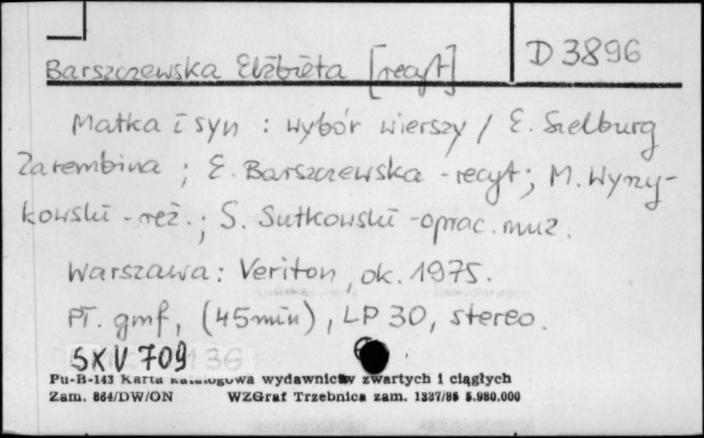 Barszczewska Elżbieta [recyt]
D 3896
Matka i syn : wybór wierszy / E. Szelburg
Zarembina ; E. Barszczewska - recyt ; M. Wyrzy-
kowski - reż. ; S. Sutkowski - oprac. muz.
Warszawa : Veriton, ok. 1975.
Pł. gmf, (45 min), LP 30, stereo.
SXV 709
Pu-B-143 Karta katalogowa wydawnictw zwartych i ciągłych
Zam. 864/DW/ON WZGraf Trzebnica zam. 1337/86 5.980.000